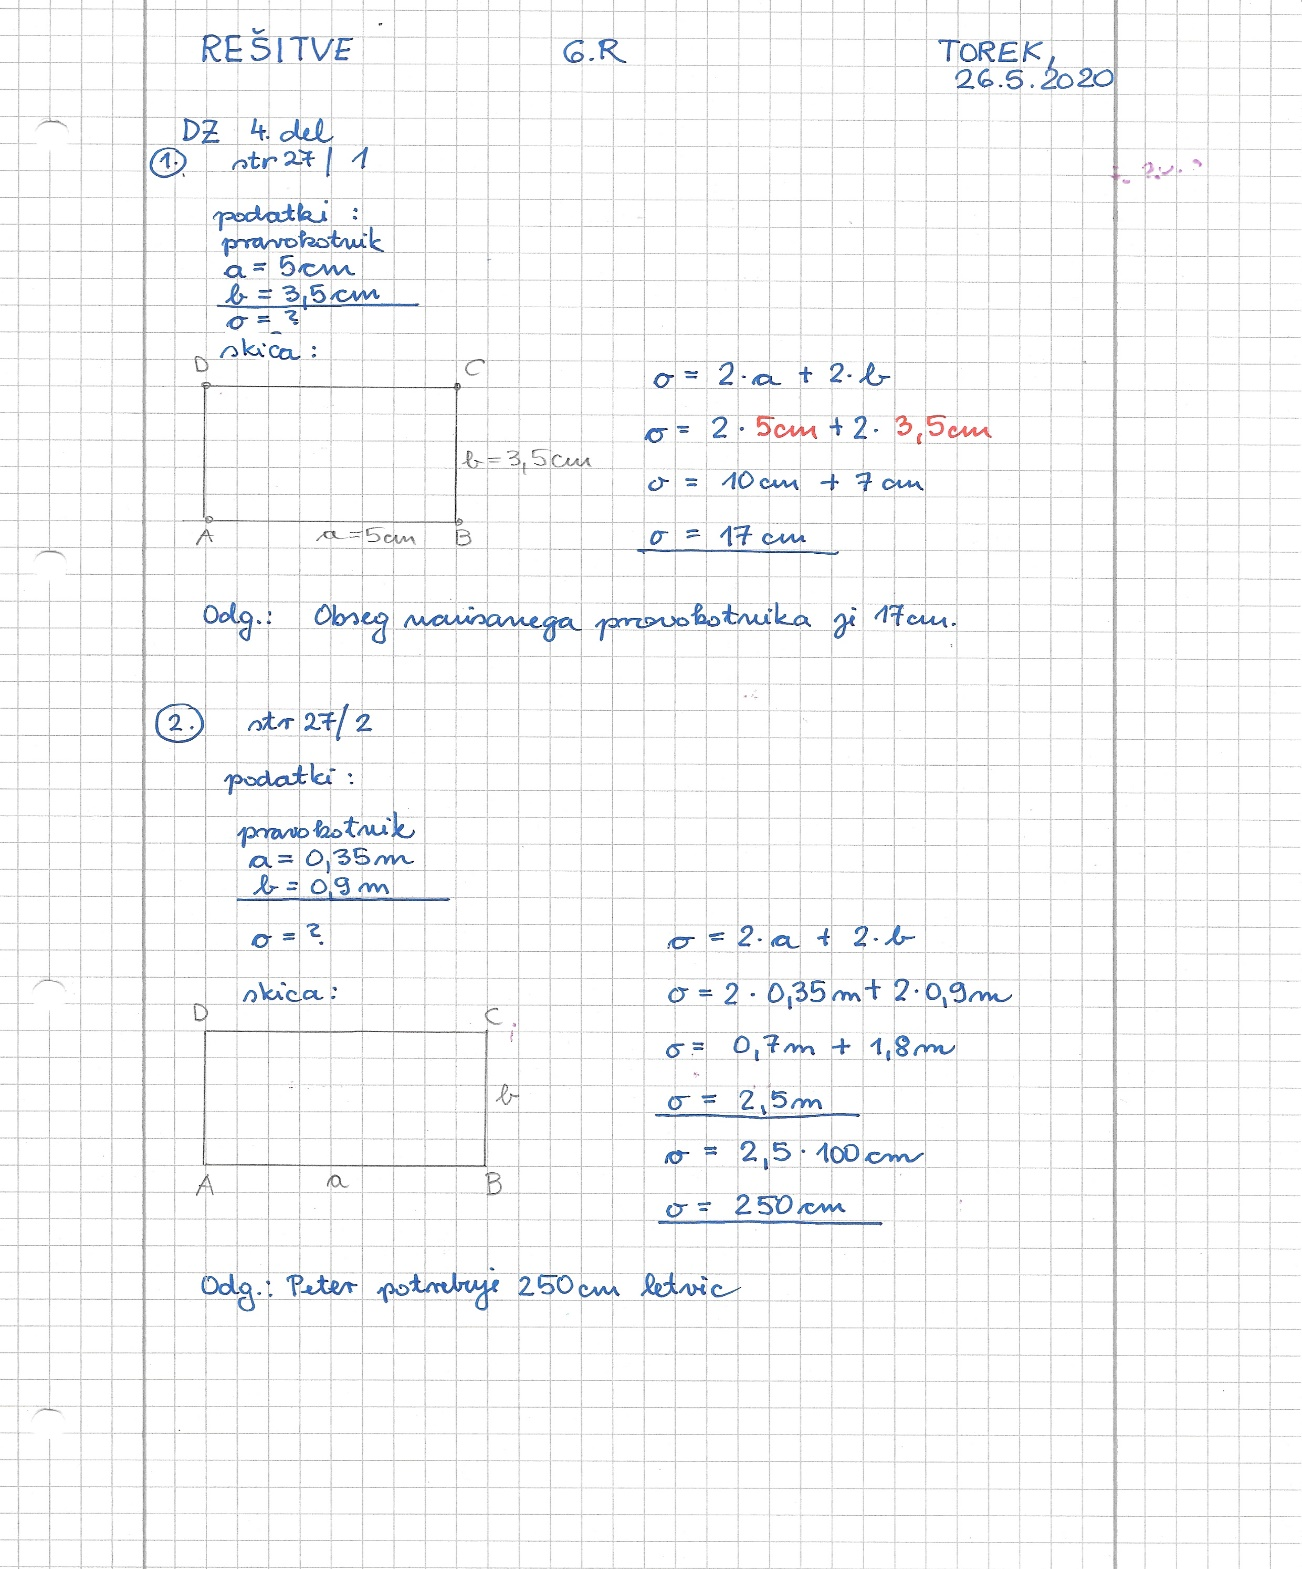 REŠITVE 6.R TOREK,
26.5.2020
DZ 4. del
1. str 27 / 1
podatki :
pravokotnik
a = 5cm
b = 3,5cm
o = ?
skica :
D C
b = 3,5cm
A a = 5cm B
o = 2·a + 2·b
o = 2 · 5cm + 2 · 3,5cm
o = 10cm + 7cm
o = 17cm
Odg.: Obseg narisanega pravokotnika je 17cm.
2. str 27/2
podatki :
pravokotnik
a = 0,35m
b = 0,9m
o = ?
skica :
D C
b
A a B
o = 2·a + 2·b
o = 2 · 0,35m + 2 · 0,9m
o = 0,7m + 1,8m
o = 2,5m
o = 2,5 · 100cm
o = 250cm
Odg.: Peter potrebuje 250cm letvic